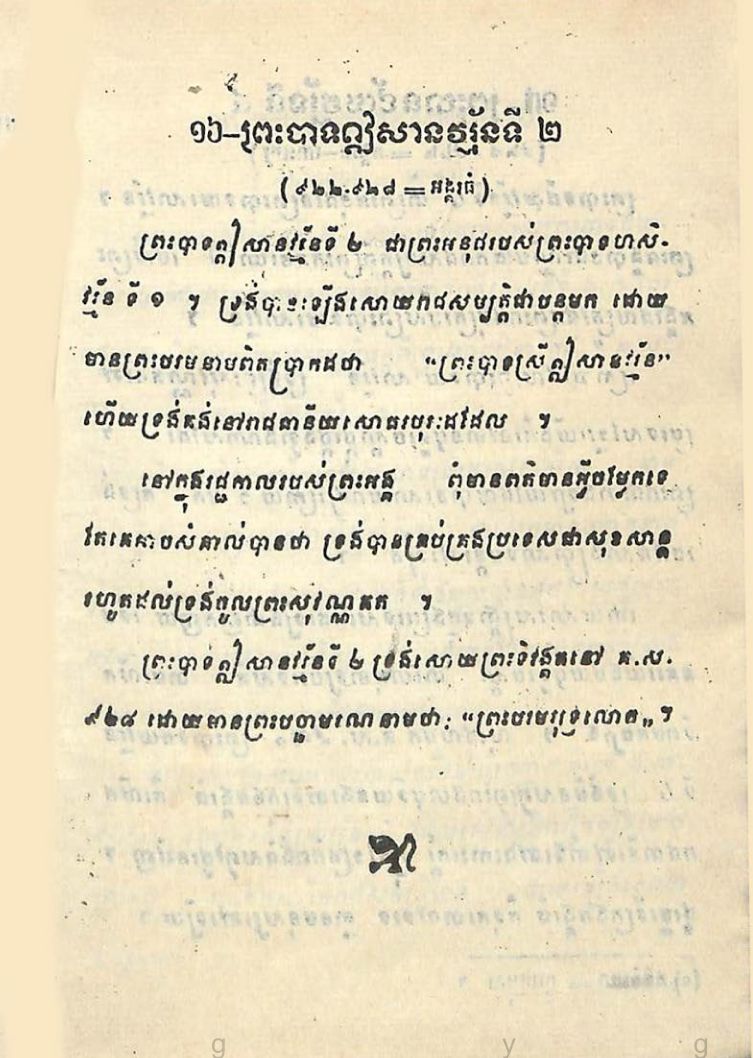 ១៦–ព្រះបាទឦសានវរ្ម័នទី ២
( ៩២២-៩២៨ = អង្គរធំ )
ព្រះបាទឦសានវរ្ម័នទី ២ ជាព្រះអនុជរបស់ព្រះបាទហស៌-
វរ្ម័ន ទី ១ ។ ទ្រង់បានឡើងសោយរាជសម្បត្តិជាបន្តមក ដោយ
មានព្រះបរមនាមពិតប្រាកដថា “ព្រះបាទស្រីឦសានវរ្ម័ន”
ហើយទ្រង់គង់នៅរាជធានីយសោធរបុរៈដដែល ។
នៅក្នុងរជ្ជកាលរបស់ព្រះអង្គ ពុំមានពត៌មានអ្វីចម្លែកទេ
តែគេគាបសំគាល់បានថា ទ្រង់បានគ្រប់គ្រងប្រទេសជាសុខសាន្ត
រហូតដល់ទ្រង់ចូលព្រះសុវណ្ណគត ។
ព្រះបាទឦសានវរ្ម័នទី ២ ទ្រង់សោយព្រះទិវង្គតនៅ គ.ស.
៩២៨ ដោយមានព្រះបច្ឆាមរណនាមថា: “ព្រះបរមរុទ្រលោត„ ។
g y g